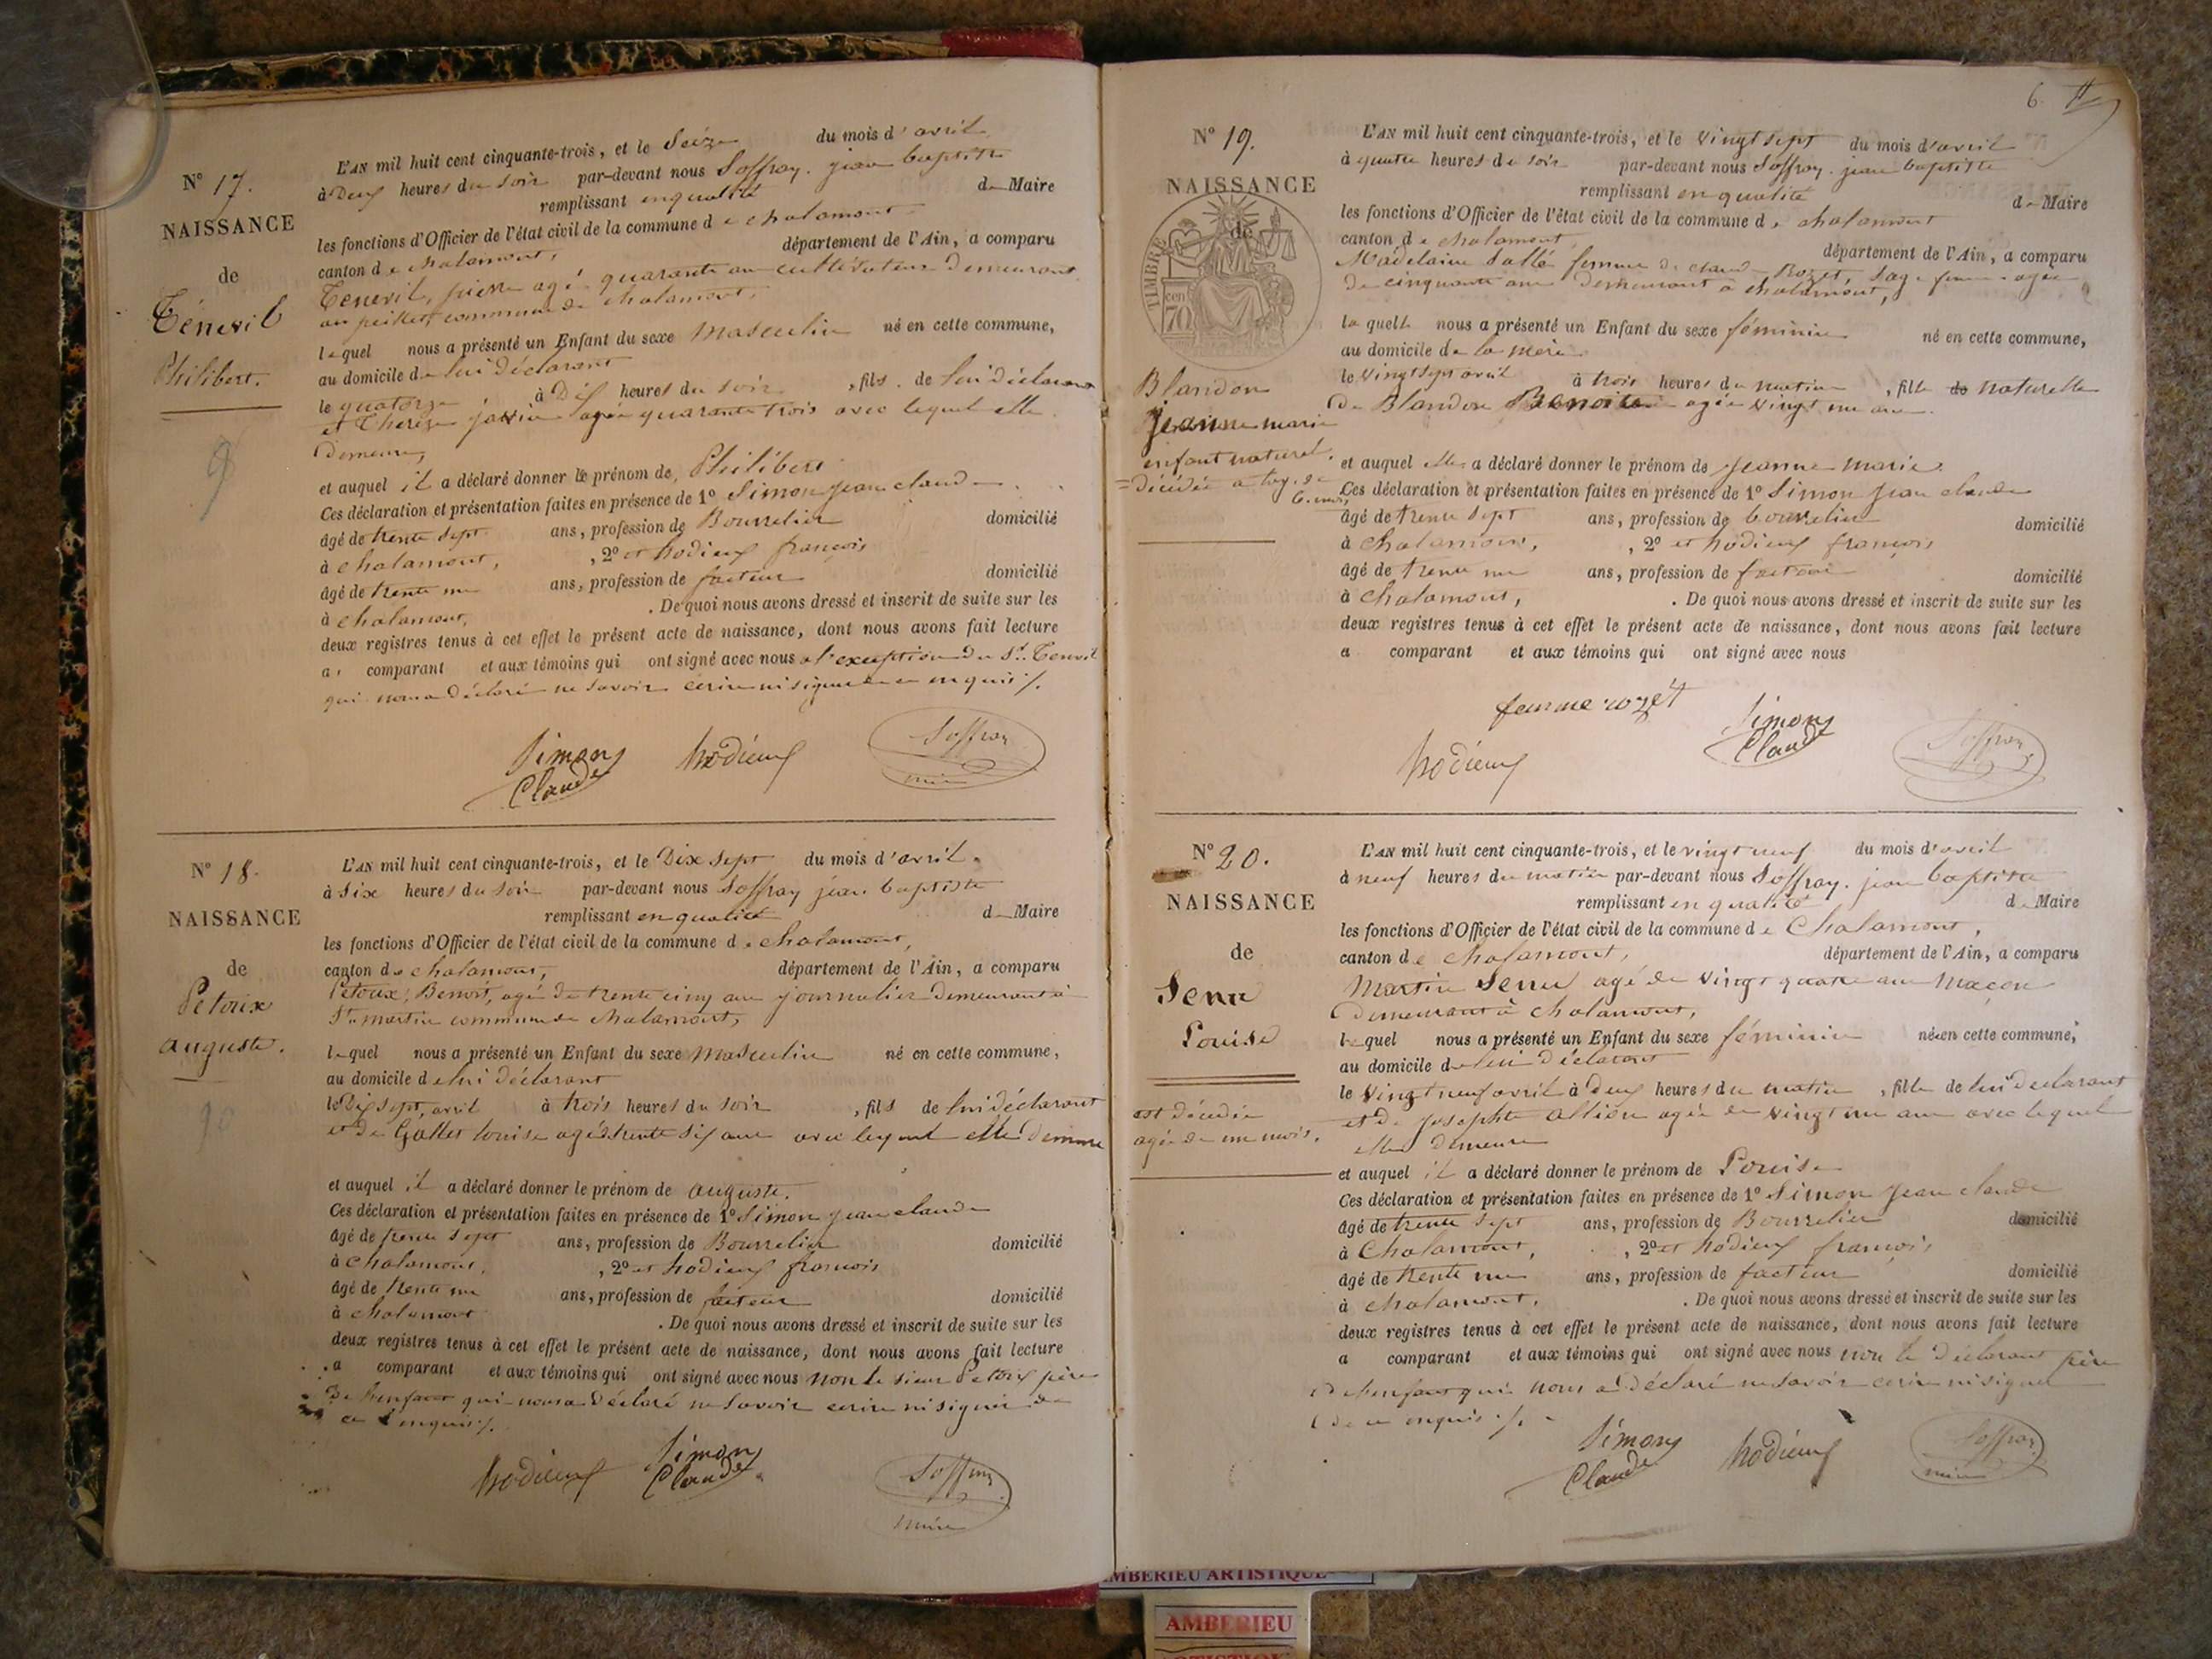 N° 17.
NAISSANCE
de
Ténevil
Philibert.
9
L'AN mil huit cent cinquante-trois, et le Seize du mois d'avril
à Deux heures du soir par-devant nous Soffray. jean baptiste
remplissant en qualité de Maire
les fonctions d'Officier de l'état civil de la commune de chalamont
canton de chalamont, département de l'Ain, a comparu
Tenevil, pierre agé quarante ans cultivateur demeurant
au commune de chalamont,
lequel nous a présenté un Enfant du sexe Masculin né en cette commune,
au domicile de lui déclarant
le quatorze à Dix heures du soir, fils de lui déclarant
et Thereze agée quarante trois avec lequel elle
demeure,
et auquel il a déclaré donner le prénom de Philibert
Ces déclaration et présentation faites en présence de 1° Simon jean claude
âgé de trente sept ans, profession de Bourrelier domicilié
à chalamont, , 2° et hodieux françois
âgé de trente un ans, profession de facteur domicilié
à chalamont, . De quoi nous avons dressé et inscrit de suite sur les
deux registres tenus à cet effet le présent acte de naissance, dont nous avons fait lecture
au comparant et aux témoins qui ont signé avec nous a l'exception du Sr. Tenevil
qui nous a déclaré ne savoir ecrire ni signer de ce enquis ./.
Simon
Claude
hodieux
Soffray
maire
N° 18.
NAISSANCE
de
Petoux
auguste.
10
L'AN mil huit cent cinquante-trois, et le Dix sept du mois d'avril.
à Six heures du soir par-devant nous Soffray jean baptiste
remplissant en qualité de Maire
les fonctions d'Officier de l'état civil de la commune de chalamont,
canton de chalamont, département de l'Ain, a comparu
Petoux, Benoit, agé de trente cinq ans journalier demeurant à
St. martin commune de chalamont,
lequel nous a présenté un Enfant du sexe Masculin né en cette commune,
au domicile de lui déclarant
le Dix sept, avril à trois heures du soir, fils de lui déclarant
et de Gallet louise agée trente six ans avec lequel elle demeure
et auquel il a déclaré donner le prénom de auguste.
Ces déclaration et présentation faites en présence de 1° Simon jean claude
âgé de trente sept ans, profession de Bourrelier domicilié
à chalamont, , 2° et hodieux francois
âgé de trente un ans, profession de facteur domicilié
à chalamont . De quoi nous avons dressé et inscrit de suite sur les
deux registres tenus à cet effet le présent acte de naissance, dont nous avons fait lecture
a comparant et aux témoins qui ont signé avec nous non le sieur Petoux père
de l'enfant qui nous a déclaré ne savoir ecrire ni signer de
ce enquis ./.
hodieux
Simon
Claude
Soffray
maire
6
N° 19.
NAISSANCE
de
TIMBRE
cen
70
Blandon
Jeanne marie
enfant naturel.
décédée a l'age de
6 mois
L'AN mil huit cent cinquante-trois, et le vingt sept du mois d'avril
à quatre heures de soir par-devant nous Soffray. jean baptiste
remplissant en qualité de Maire
les fonctions d'Officier de l'état civil de la commune de chalamont
canton de chalamont, département de l'Ain, a comparu
Madelaine Sallé femme de claude Rozet, sage femme agée
de cinquante ans demeurant a chalamont,
laquelle nous a présenté un Enfant du sexe féminin né en cette commune,
au domicile de la mère
le vingt sept avril à trois heures du matin, fille de naturelle
de Blandon Benoite agée vingt un ans.
et auquel elle a déclaré donner le prénom de jeanne marie
Ces déclaration et présentation faites en présence de 1° Simon jean claude
âgé de trente sept ans, profession de bourrelier domicilié
à chalamont, , 2° et hodieux françois
âgé de trente un ans, profession de facteur domicilié
à chalamont, . De quoi nous avons dressé et inscrit de suite sur les
deux registres tenus à cet effet le présent acte de naissance, dont nous avons fait lecture
a comparant et aux témoins qui ont signé avec nous
femme rozet
Simon
Claude
hodieux
Soffray
N° 20.
NAISSANCE
de
Louise
est décédée
agée de un mois.
L'AN mil huit cent cinquante-trois, et le vingt neuf du mois d'avril
à neuf heures du matin par-devant nous Soffray. jean baptiste
remplissant en qualité de Maire
les fonctions d'Officier de l'état civil de la commune de Chalamont,
canton de chalamont, département de l'Ain, a comparu
Martin agé de vingt quatre ans Maçon
demeurant à chalamont,
lequel nous a présenté un Enfant du sexe féminin née en cette commune,
au domicile de lui déclarant
le vingt neuf avril à deux heures du matin, fille de lui declarant
et de josephte agée de vingt un ans avec lequel
elle demeure
et auquel il a déclaré donner le prénom de Louise
Ces déclaration et présentation faites en présence de 1° Simon jean claude
âgé de trente sept ans, profession de Bourrelier domicilié
à Chalamont, , 2° et hodieux françois
âgé de trente un ans, profession de facteur domicilié
à chalamont, . De quoi nous avons dressé et inscrit de suite sur les
deux registres tenus à cet effet le présent acte de naissance, dont nous avons fait lecture
a comparant et aux témoins qui ont signé avec nous non le déclarant père
de l'enfant qui nous a déclaré ne savoir ecrire ni signer
de ce enquis ./.
Simon
Claude
hodieux
Soffray
maire
AMBERIEU ARTISTIQUE
AMBERIEU
ARTISTIQUE